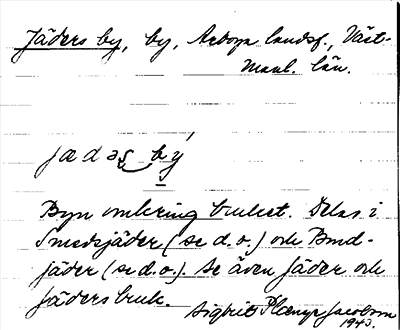 Jäders by, by, Arboga landsf., Väst-
manl. län.
jädəʂ bý
Byn omkring bruket. Delas i
Smedsjäder (se d.o.) och Bond-
jäder (se d.o.). Se även Jäder och
Jäders bruk.
Sigbrit Plænge Jacobson
1943.